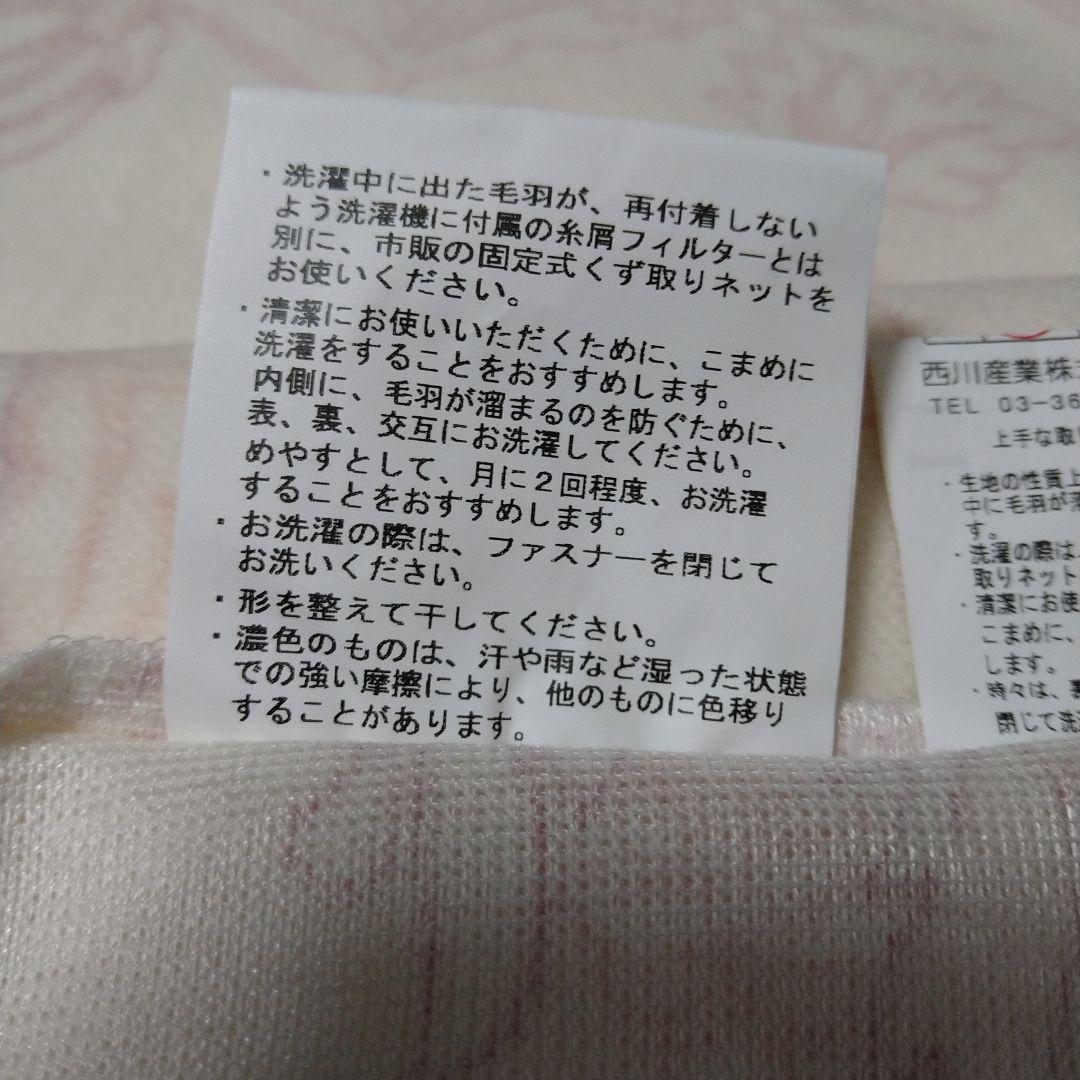 ・洗濯中に出た毛羽が、再付着しない
よう洗濯機に付属の糸屑フィルターとは
別に、市販の固定式くず取りネットを
お使いください。
・清潔にお使いいただくために、こまめに
洗濯をすることをおすすめします。
内側に、毛羽が溜まるのを防ぐために、
表、裏、交互にお洗濯してください。
めやすとして、月に2回程度、お洗濯
することをおすすめします。
・お洗濯の際は、ファスナーを閉じて
お洗いください。
・形を整えて干してください。
・濃色のものは、汗や雨など湿った状態
での強い摩擦により、他のものに色移り
することがあります。
西川産業株
TEL 03-36
上手な取
・生地の性質上
中に毛羽が
す。
・洗濯の際は
取りネット
・清潔にお使
こまめに、
します。
・時々は、
閉じて洗